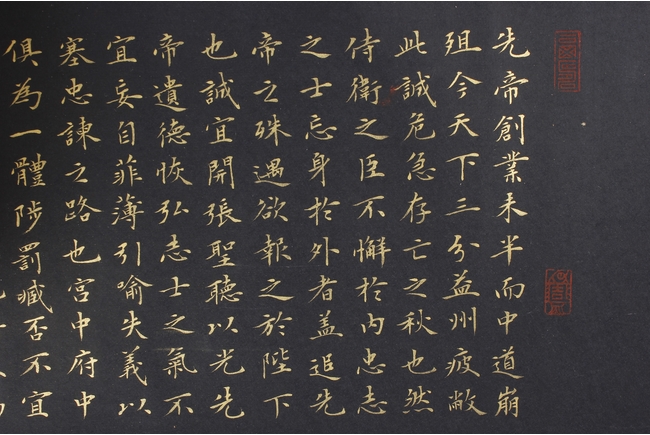 先帝創業未半而中道崩
殂今天下三分益州疲敝
此誠危急存亡之秋也然
侍衛之臣不懈於內忠志
之士忘身於外者盖追先
帝之殊遇欲報之於陛下
也誠宜開張聖聽以光先
帝遺德恢弘志士之氣不
宜妄自菲薄引喻失義以
塞忠諫之路也宮中府中
俱為一體陟罰臧否不宜